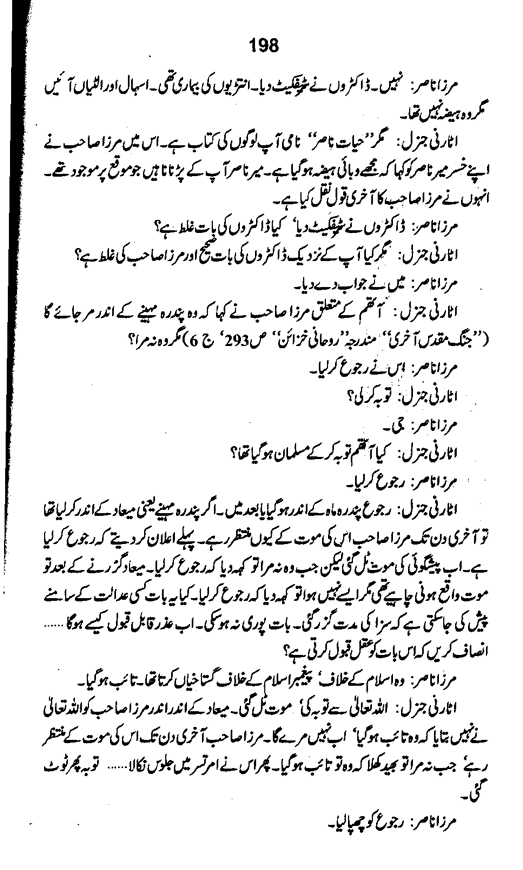 198
مرزا ناصر: نہیں۔ ڈاکٹروں نے سرٹیفکیٹ دیا۔ انتڑیوں کی بیماری تھی۔ اسہال اور الٹیاں آئیں
مگر وہ ہیضہ نہیں تھا۔
اٹارنی جنرل: مگر ”حیات ناصر“ نامی آپ لوگوں کی کتاب ہے۔ اس میں مرزا صاحب نے
اپنے خسر میر ناصر کو کہا کہ مجھے وبائی ہیضہ ہو گیا ہے۔ میر ناصر آپ کے پڑنانا ہیں جو موقع پر موجود تھے۔
انہوں نے مرزا صاحب کا آخری قول نقل کیا ہے۔
مرزا ناصر: ڈاکٹروں نے سرٹیفکیٹ دیا‘ کیا ڈاکٹروں کی بات غلط ہے؟
اٹارنی جنرل: مگر کیا آپ کے نزدیک ڈاکٹروں کی بات صحیح اور مرزا صاحب کی غلط ہے؟
مرزا ناصر: میں نے جواب دے دیا۔
اٹارنی جنرل: آتھم کے متعلق مرزا صاحب نے کہا کہ وہ پندرہ مہینے کے اندر مر جائے گا
(”جنگ مقدس آخری“ مندرجہ ”روحانی خزائن“ ص 293‘ ج 6) مگر وہ نہ مرا؟
مرزا ناصر: اس نے رجوع کر لیا۔
اٹارنی جنرل: توبہ کر لی؟
مرزا ناصر: جی۔
اٹارنی جنرل: کیا آتھم توبہ کر کے مسلمان ہو گیا تھا؟
مرزا ناصر: رجوع کر لیا۔
اٹارنی جنرل: رجوع پندرہ ماہ کے اندر ہو گیا یا بعد میں۔ اگر پندرہ مہینے یعنی میعاد کے اندر کر لیا تھا
تو آخری دن تک مرزا صاحب اس کی موت کے کیوں منتظر رہے۔ پہلے اعلان کر دیتے کہ رجوع کر لیا
ہے۔ اب پیشگوئی کی موت ٹل گئی لیکن جب وہ نہ مرا تو کہہ دیا کہ رجوع کر لیا۔ میعاد گزرنے کے بعد تو
موت واقع ہونی چاہیے تھی مگر ایسے نہیں ہوا تو کہہ دیا کہ رجوع کر لیا۔ کیا یہ بات کسی عدالت کے سامنے
پیش کی جا سکتی ہے کہ سزا کی مدت گزر گئی۔ بات پوری نہ ہو سکی۔ اب عذر قابل قبول کیسے ہو گا......
انصاف کریں کہ اس بات کو عقل قبول کرتی ہے؟
مرزا ناصر: وہ اسلام کے خلاف‘ پیغمبر اسلام کے خلاف گستاخیاں کرتا تھا۔ تائب ہو گیا۔
اٹارنی جنرل: اللہ تعالیٰ سے توبہ کی‘ موت ٹل گئی۔ میعاد کے اندر اندر مرزا صاحب کو اللہ تعالیٰ
نے نہیں بتایا کہ وہ تائب ہو گیا‘ اب نہیں مرے گا۔ مرزا صاحب آخری دن تک اس کی موت کے منتظر
رہے‘ جب نہ مرا تو بھید کھلا کہ وہ تو تائب ہو گیا۔ پھر اس نے امرتسر میں جلوس نکالا...... توبہ پھر ٹوٹ
گئی۔
مرزا ناصر: رجوع کو چھپا لیا۔